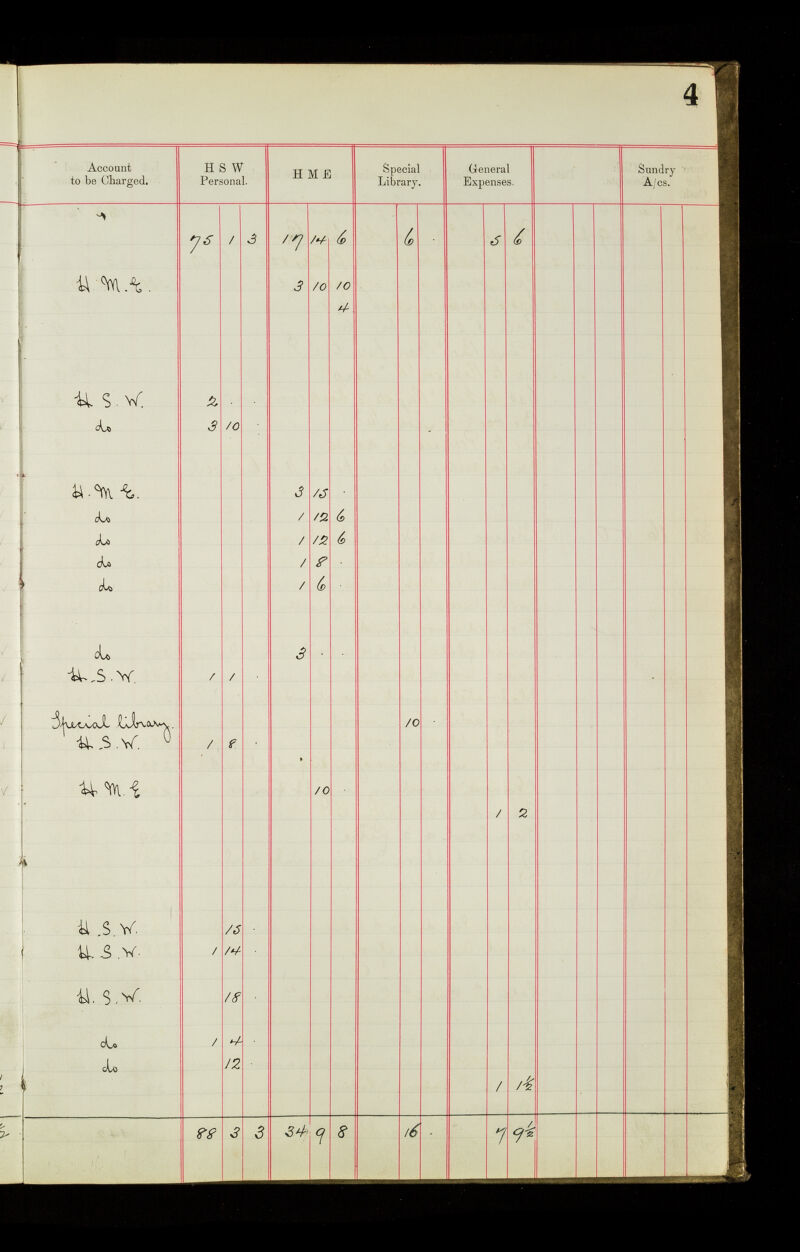 4
Account to be Charged. H S W Personal. H M E Special Library. General Expenses. Sundry A/cs.
75 1 3 17 14 6 6 · 5 6
H M.E. 3 10 10
4
H. S. W. 2 · ·
do 3 10 ·
H. M E. 3 15 ·
do 1 12 6
do 1 12 6
do 1 8 ·
do 1 6 ·
do 3 · ·
H. S. W. 1 1 ·
Special Library. 10 ·
H. S. W. 1 8 ·
H M. E 10 ·
1 2
H. S. W. 15 ·
H. S. W. 1 14 ·
H. S. W. 18 ·
do 1 4 ·
do 12 ·
1 1½
88 3 3 34 9 8 16 · 7 9½